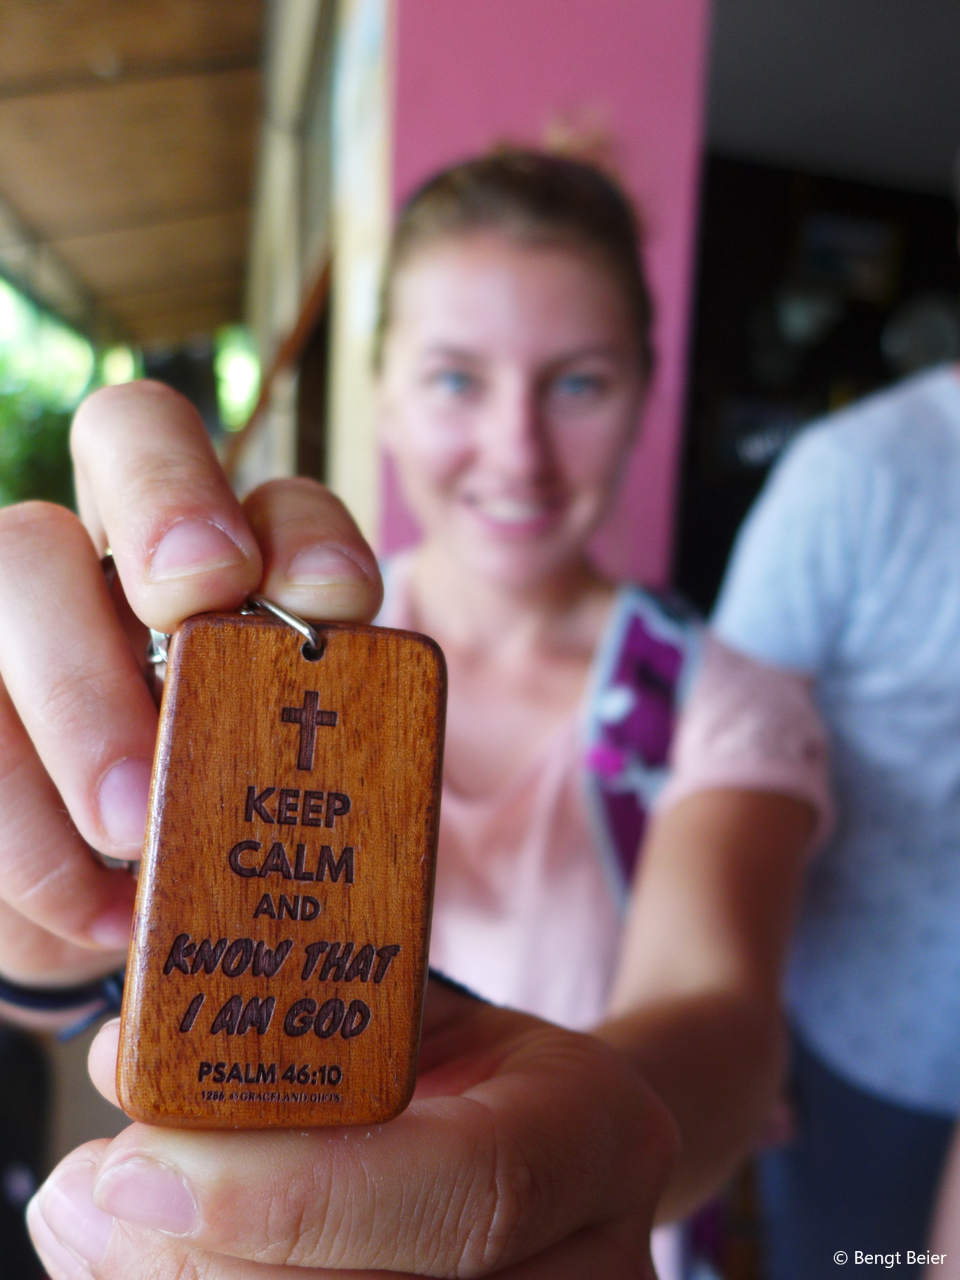 KEEP
CALM
AND
KNOW THAT
I AM GOD
PSALM 46:10
1286 @GRACELANDGIFTS
© Bengt Beier